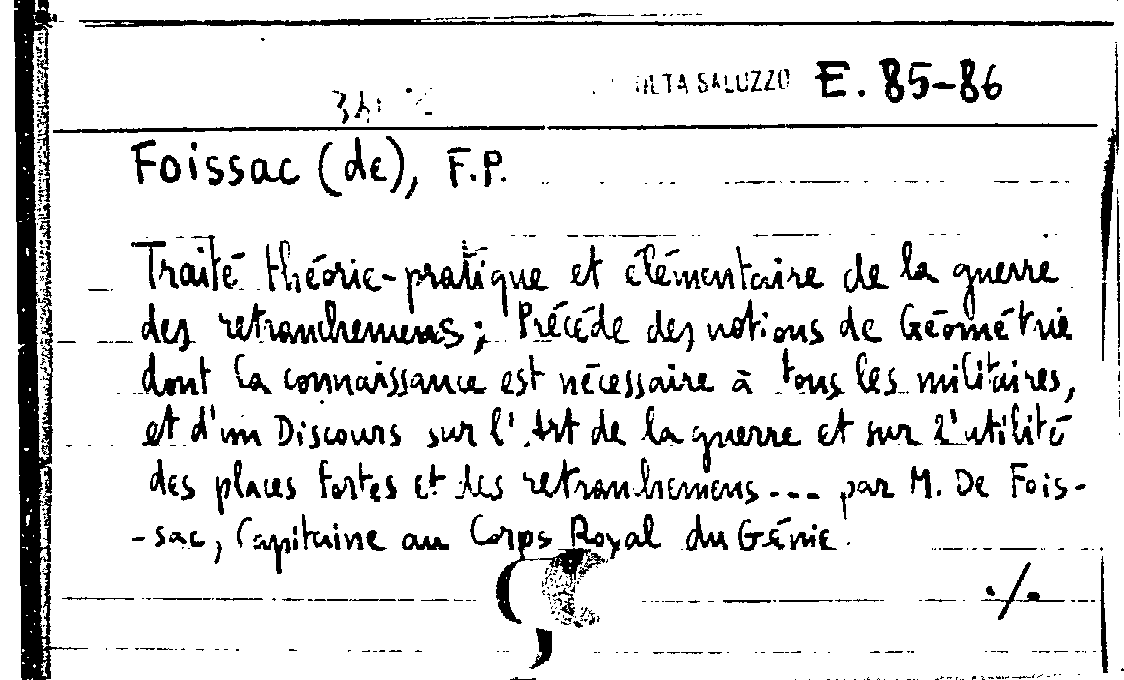 SALUZZO E. 85-86
Foissac (de), F.P.
Traité théoric-pratique et élémentaire de la guerre
des retranchemens; Précéde des notions de Géométrie
dont la connaissance est nécessaire à tous les militaires,
et d'un Discours sur l'Art de la guerre et sur l'utilité
des places fortes et des retranchemens--- par M. De Fois-
-sac, Capitaine au Corps Royal du Génie.
./.